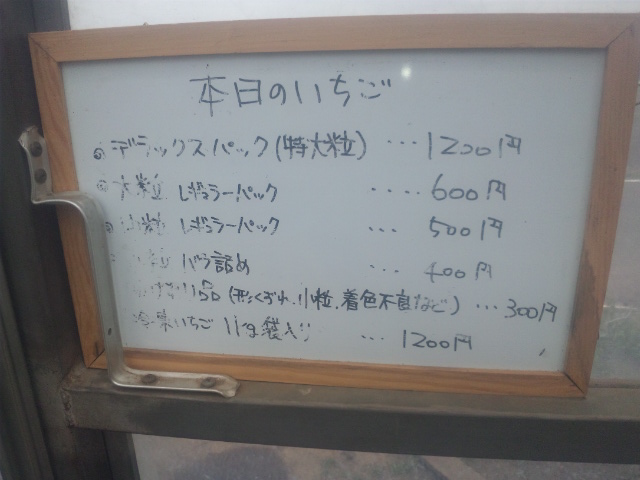 本日のいちご
◎デラックスパック(特大粒) … 1200円
◎大粒 レギュラーパック …. 600円
◎小粒 レギュラーパック … 500円
小粒 バラ詰め … 400円
品(形くずれ、小粒、着色不良など) … 300円
冷凍いちご 1kg袋入り … 1200円